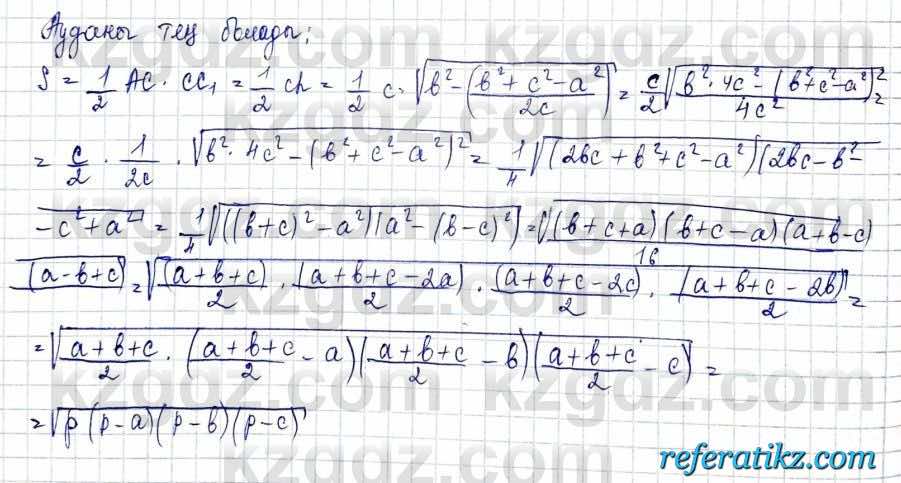 Ауданы тең болады:
S = 1/2 AC · CC₁ = 1/2 ch = 1/2 c · √(в² - (в² + c² - a²)/2c) = c/2 √((в² · 4c² - (в² + c² - a²)²)/4c²) =
= c/2 · 1/2c · √(в² · 4c² - (в² + c² - a²)²) = 1/4 √((2вc + в² + c² - a²)(2вc - в² -
- c² + a²) = 1/4 √(((в + c)² - a²)(a² - (в - c)²) = √((в + c + a)(в + c - a)(a + в - c)
(a - в + c)/16 = √((a + в + c)/2 · (a + в + c - 2a)/2 · (a + в + c - 2c)/2 · (a + в + c - 2в)/2 =
= √((a + в + c)/2 · ((a + в + c)/2 - a)((a + в + c)/2 - в)((a + в + c)/2 - c) =
= √(p(p - a)(p - в)(p - c)
kzgdz.com
referatikz.com